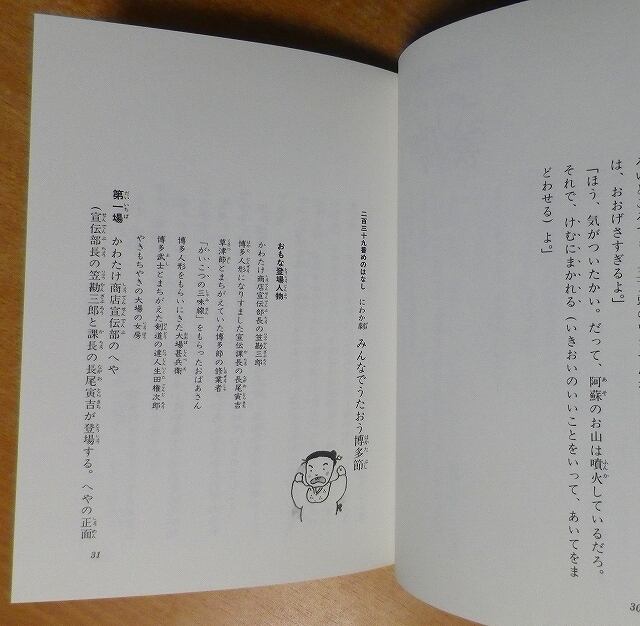 は、おおげさすぎるよ。」
「ほう、気がついたかい。だって、阿蘇のお山は噴火しているだろ。
それで、けむにまかれる（いきおいのいいことをいって、あいてをま
どわせる）よ。」
30
二百三十九番めのはなし　にわか劇　みんなでうたおう博多節
おもな登場人物
かわたけ商店宣伝部長の笠勘三郎
博多人形になりすました宣伝課長の長尾寅吉
草津節とまちがえていた博多節の修業者
「がいこつの三味線」をもらったおばあさん
博多人形をもらいにきた大場甚兵衛
博多武士とまちがえた剣道の達人生田権次郎
やきもちやきの大場の女房
第一場　かわたけ商店宣伝部のへや
（宣伝部長の笠勘三郎と課長の長尾寅吉が登場する。へやの正面
31